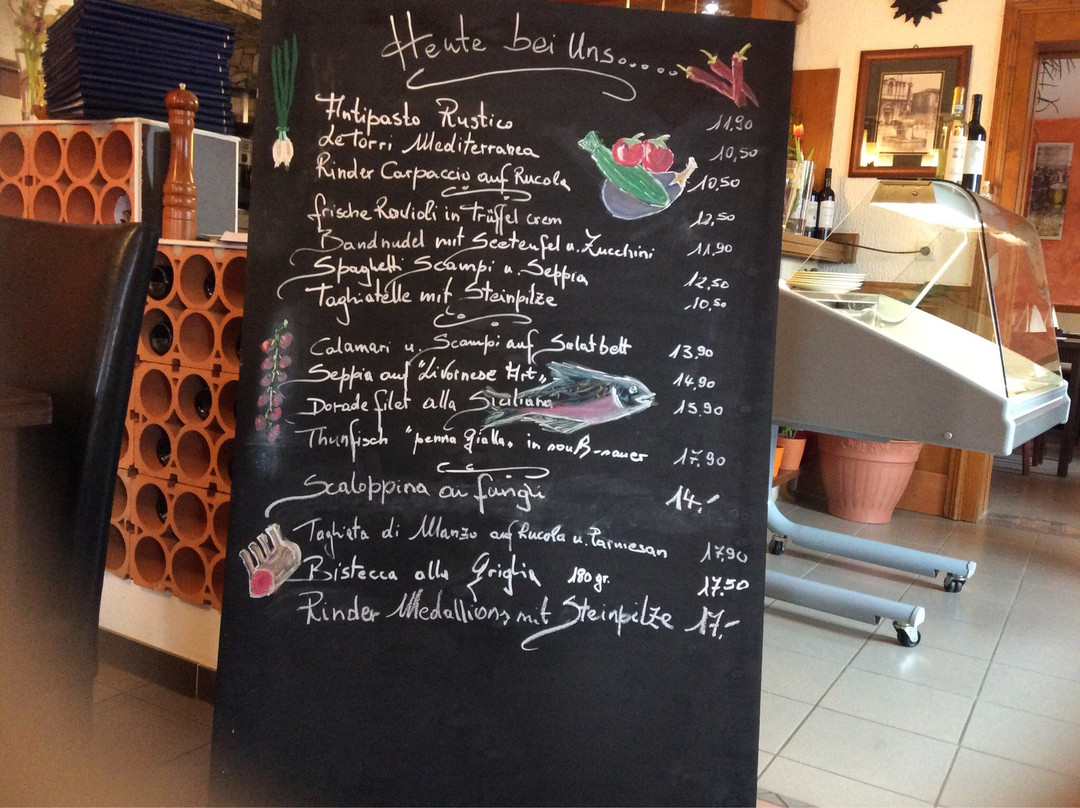 Heute bei Uns.....
Antipasto Rustico 11,90
Le Torri Mediterranea 10,50
Rinder Carpaccio auf Rucola 10,50
frische Ravioli in Trüffel crem 12,50
Bandnudel mit Seeteufel u. Zucchini 11,90
Spaghetti Scampi u. Seppia 12,50
Tagliatelle mit Steinpilze 10,50
Calamari u. Scampi auf Salatbett 13,90
Seppia auf "Livornese Art" 14,90
Dorade filet alla Siciliana 15,90
Thunfisch "penna gialla" in souß-sauer 17,90
Scaloppina ai funghi 14,-
Tagliata di Manzo auf Rucola u. Parmesan 17,90
Bistecca alla Griglia 180 gr. 17.50
Rinder Medallions mit Steinpilze 17,-